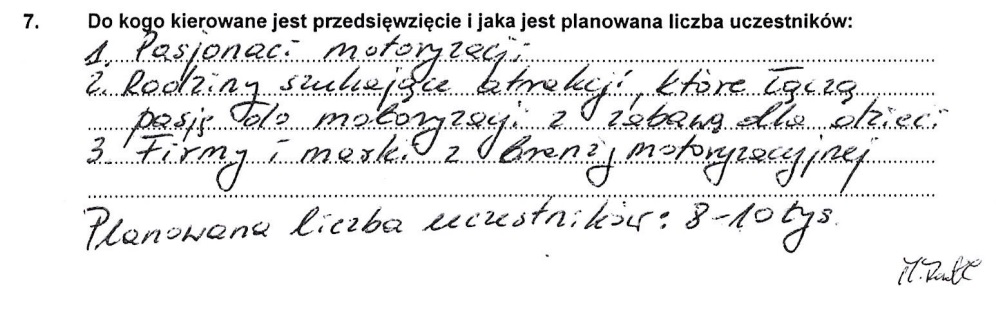 7. Do kogo kierowane jest przedsięwzięcie i jaka jest planowana liczba uczestników:
1. Pasjonaci motoryzacji
2. Rodziny szukające atrakcji, które łączą
pasję do motoryzacji z zabawą dla dzieci
3. Firmy i marki z branży motoryzacyjnej
Planowana liczba uczestników: 8-10 tys.